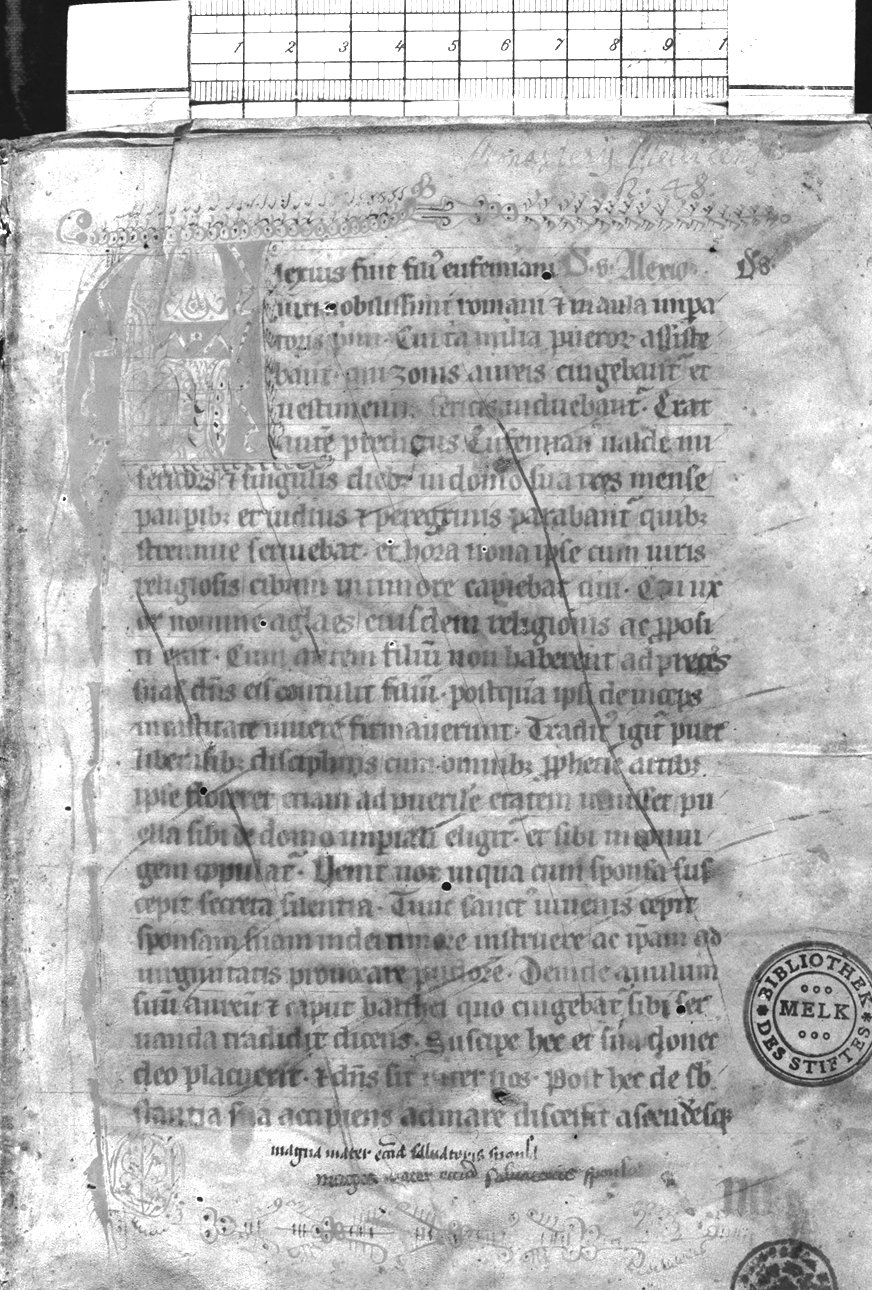 1 2 3 4 5 6 7 8 9 1
Monasterij Mellicens
R. 48.
Alexius fuit fili᾽ eufemiani D. s. Alexio
uiri nobilissimi romani ⁊ in aula impa
toris p̄mi. Cui iiia milia pueroꝝ assiste
bant qui zonis aureis cingebant᷑ et
uestimentis sericis induebant᷑. Erat
autē predictus Eufemian᾽ ualde mi
sericors ⁊ singulis dieb᷒ in domo sua tres mense
paupib᷒ et uiduis ⁊ peregrinis parabant᷑ quib᷒
strennue seruiebat. et hora nona ipse cum uiris
religiosis cibum in timore capiebat dni. Cui ux
or nomine aglaes eiusdem religionis ac ꝓposi
ti erat. Cum autem filiū non haberent ad preces
suas dn̄s eis contulit filiū. postquā ipsi deinceps
in castitate uiuere firmauerunt. Tradit᷑ igit᷑ puer
liberalib᷒ disciplinis cum omnib᷒ ꝓphetie artib᷒
ipse floreret etiam ad puerilē etatem uenisset pu
ella sibi de domo impiali eligit᷑. et sibi in coniu
gem copulat᷑. Venit nox in qua cum sponsa sus
cepit secreta silentia. Tunc sanct᾽ iuuenis cepit
sponsam suam in dei timore instruere ac ip̄am ad
uirginitatis prouocare pudorē. Deinde anulum
suū aureū ⁊ caput balthei quo cingebat᷑ sibi ser
uanda tradidit dicens. Suscipe hec et s̄ua donec
deo placuerit. ⁊ dn̄s sit inter nos. Post hec de sb̄
stantia sua accipiens ad mare discessit ascendēsqꝫ
magna mater saluatoris
mater saluatoris
BIBLIOTHEK
MELK
DES STIFTES